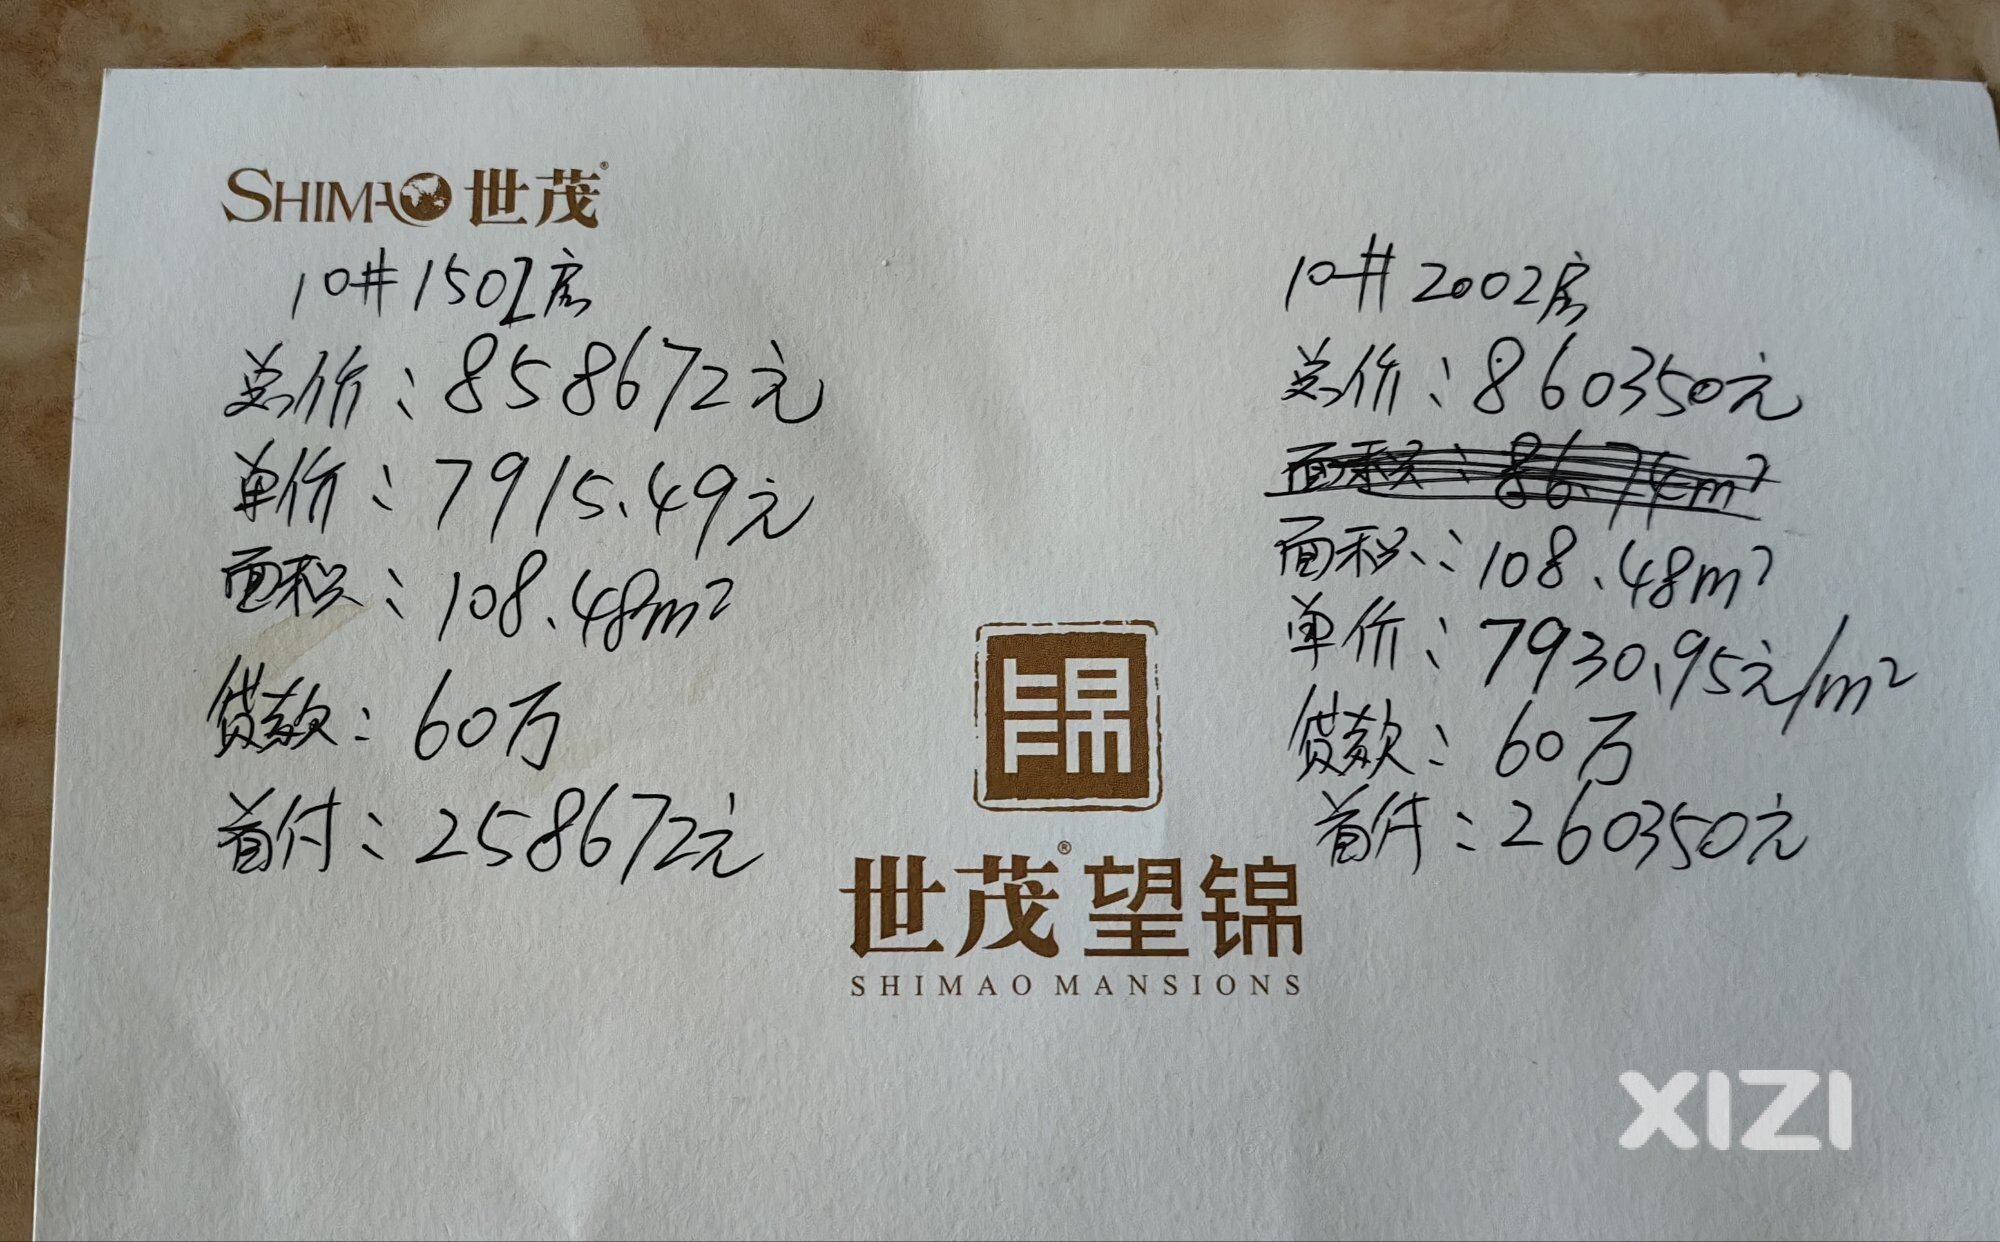 SHIMAO 世茂®
10# 1502房
总价：858672元
单价：7915.49元
面积：108.48m²
贷款：60万
首付：258672元
10# 2002房
总价：860350元
面积：86.74m²
面积：108.48m²
单价：7930.95元/m²
贷款：60万
首付：260350元
锦
世茂®望锦
SHIMAO MANSIONS
XIZI